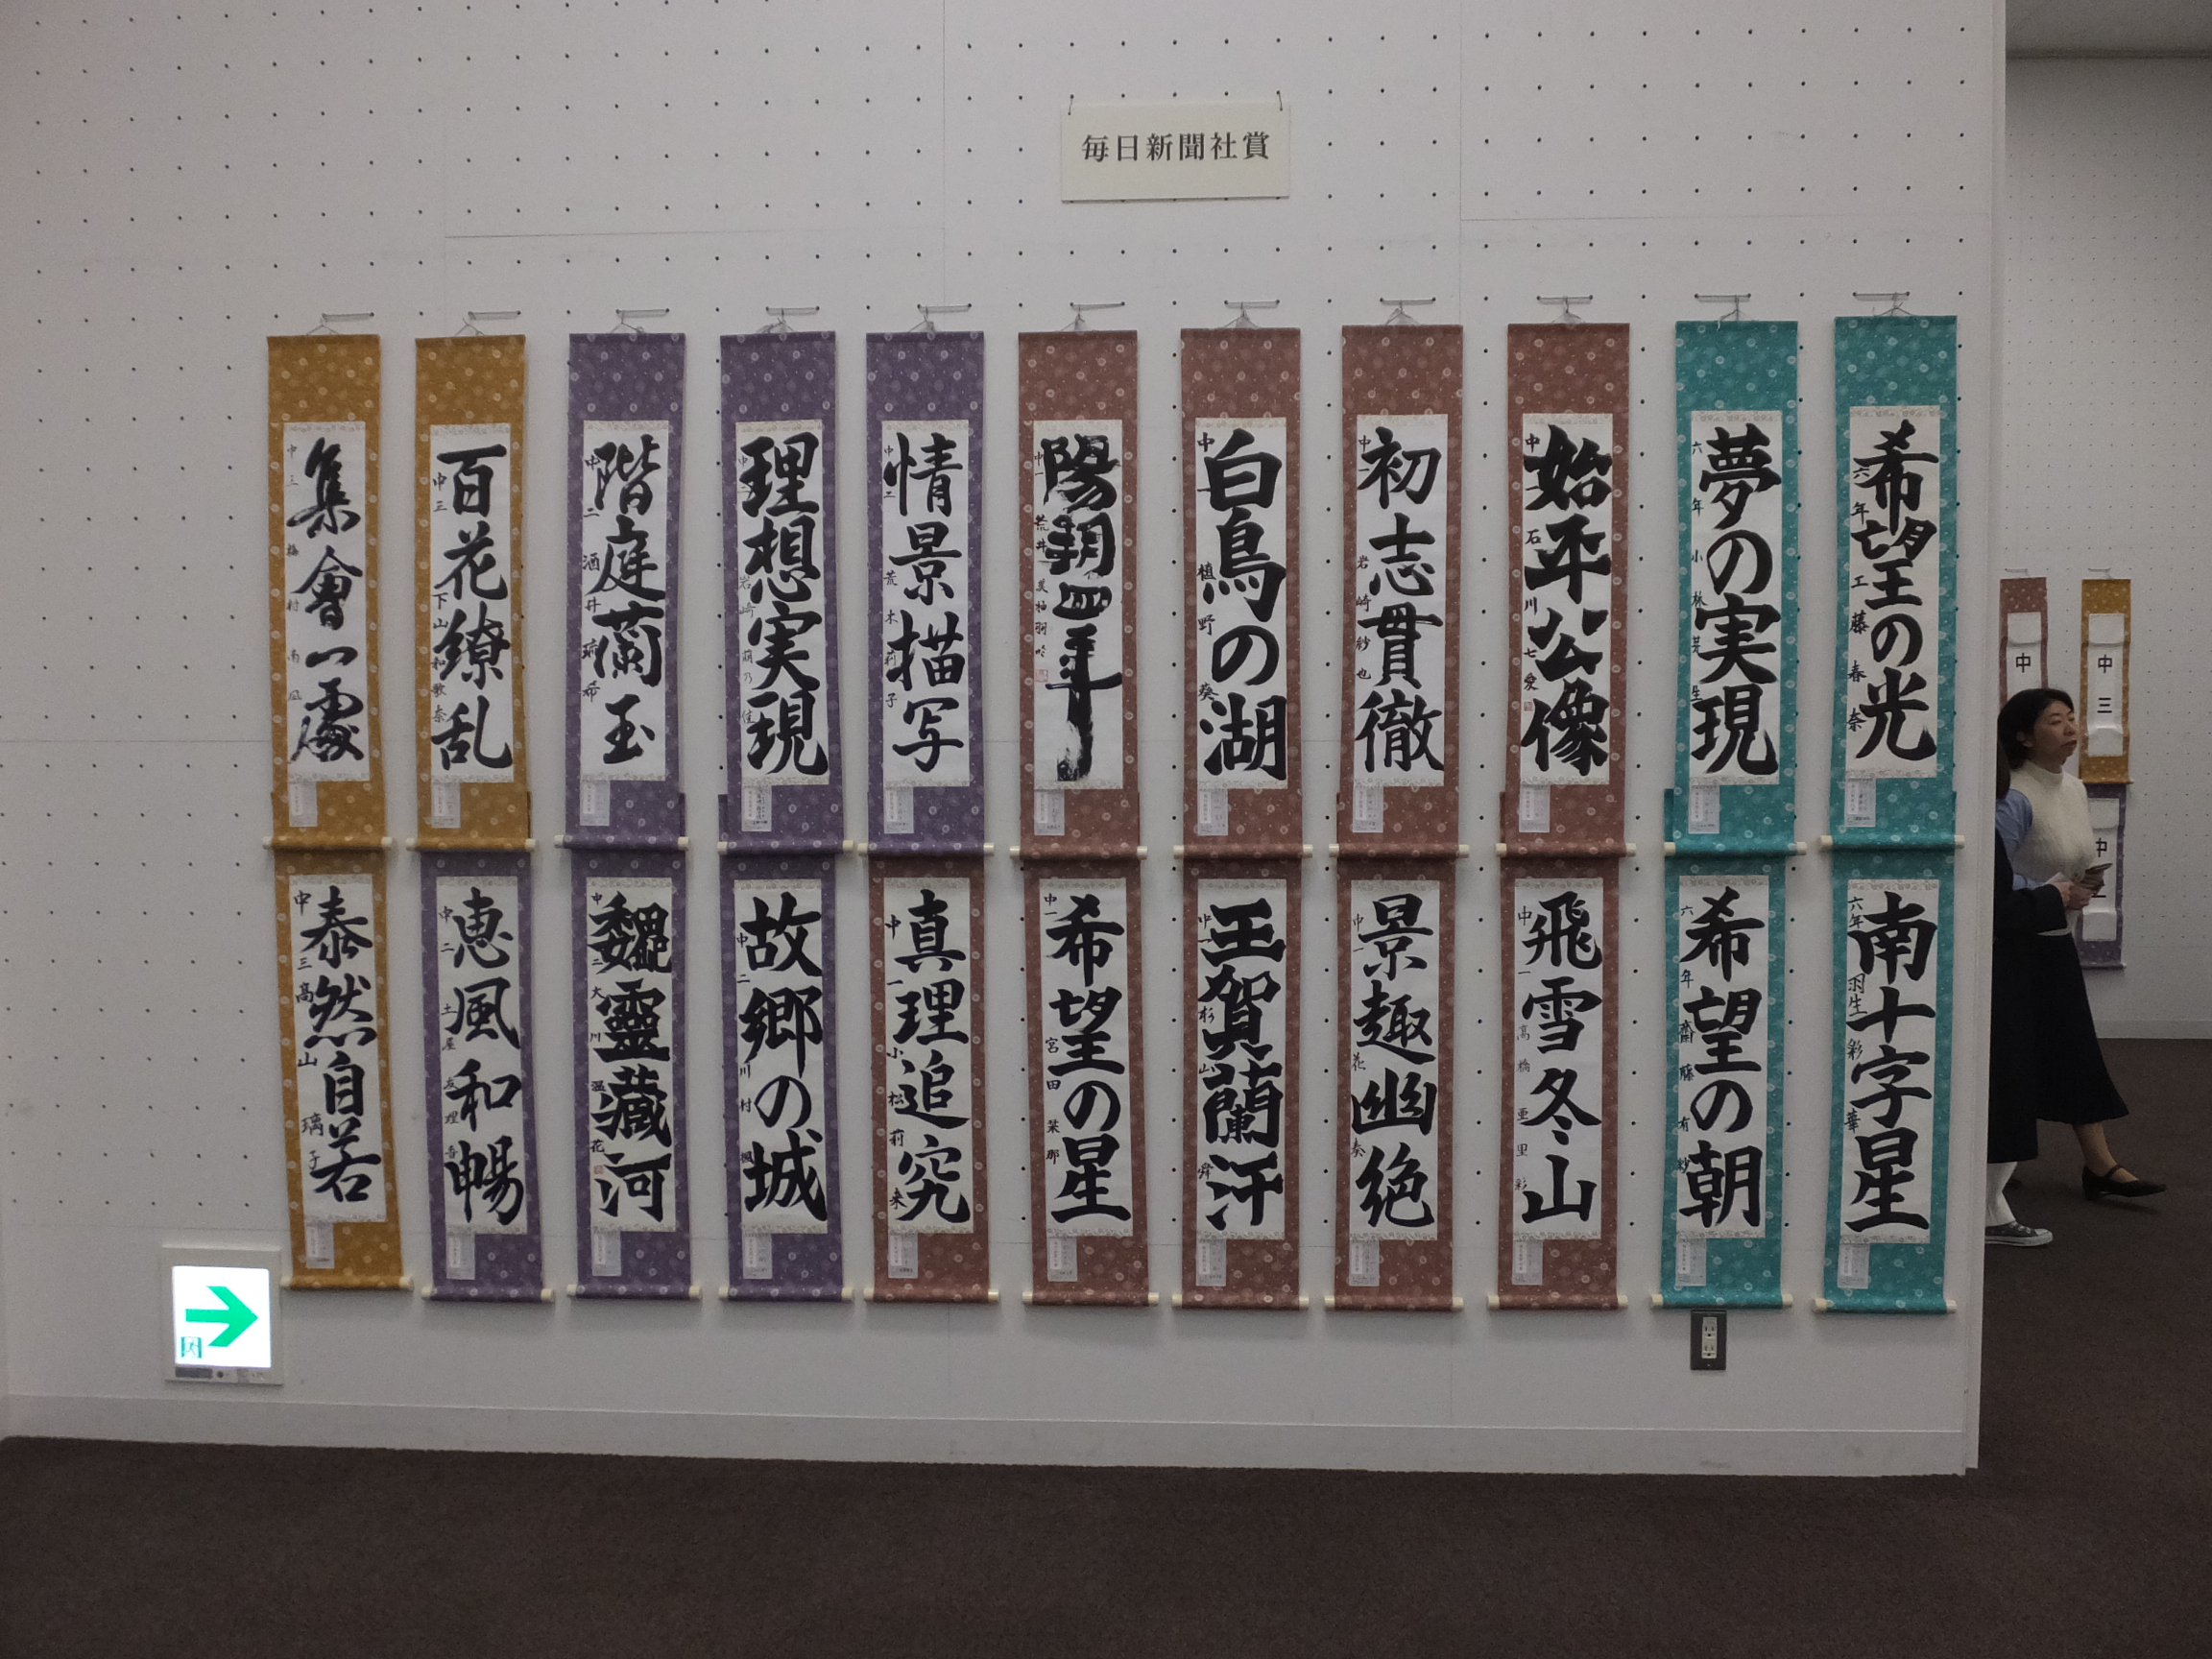 毎日新聞社賞
希望の光
六年 工藤春奈
夢の実現
六年 小林芽生
始平公像
中一 石川七愛
初志貫徹
中一 岩崎紗也
白鳥の湖
中一 植野葵
陽朝四年
中一 荒井美柚
情景描写
中二 荒木莉子
理想実現
中二 岩崎萌乃佳
階庭蘭玉
中二 酒井瑀希
百花繚乱
中三 下山和歌奈
集會一處
中三 梅村南
南十字星
六年 羽生彩華
希望の朝
六年 齋藤有紗
飛雪冬山
中一 高橋亜里彩
景趣幽絶
中一 花奏
王賀蘭汗
中一 杉山舜
希望の星
中一 宮田栞那
真理追究
中一 小松莉来
故郷の城
中二 川村楓
魏靈藏河
中二 大川温花
恵風和暢
中二 土屋友理香
泰然自若
中三 髙山璃子
中
中三
中